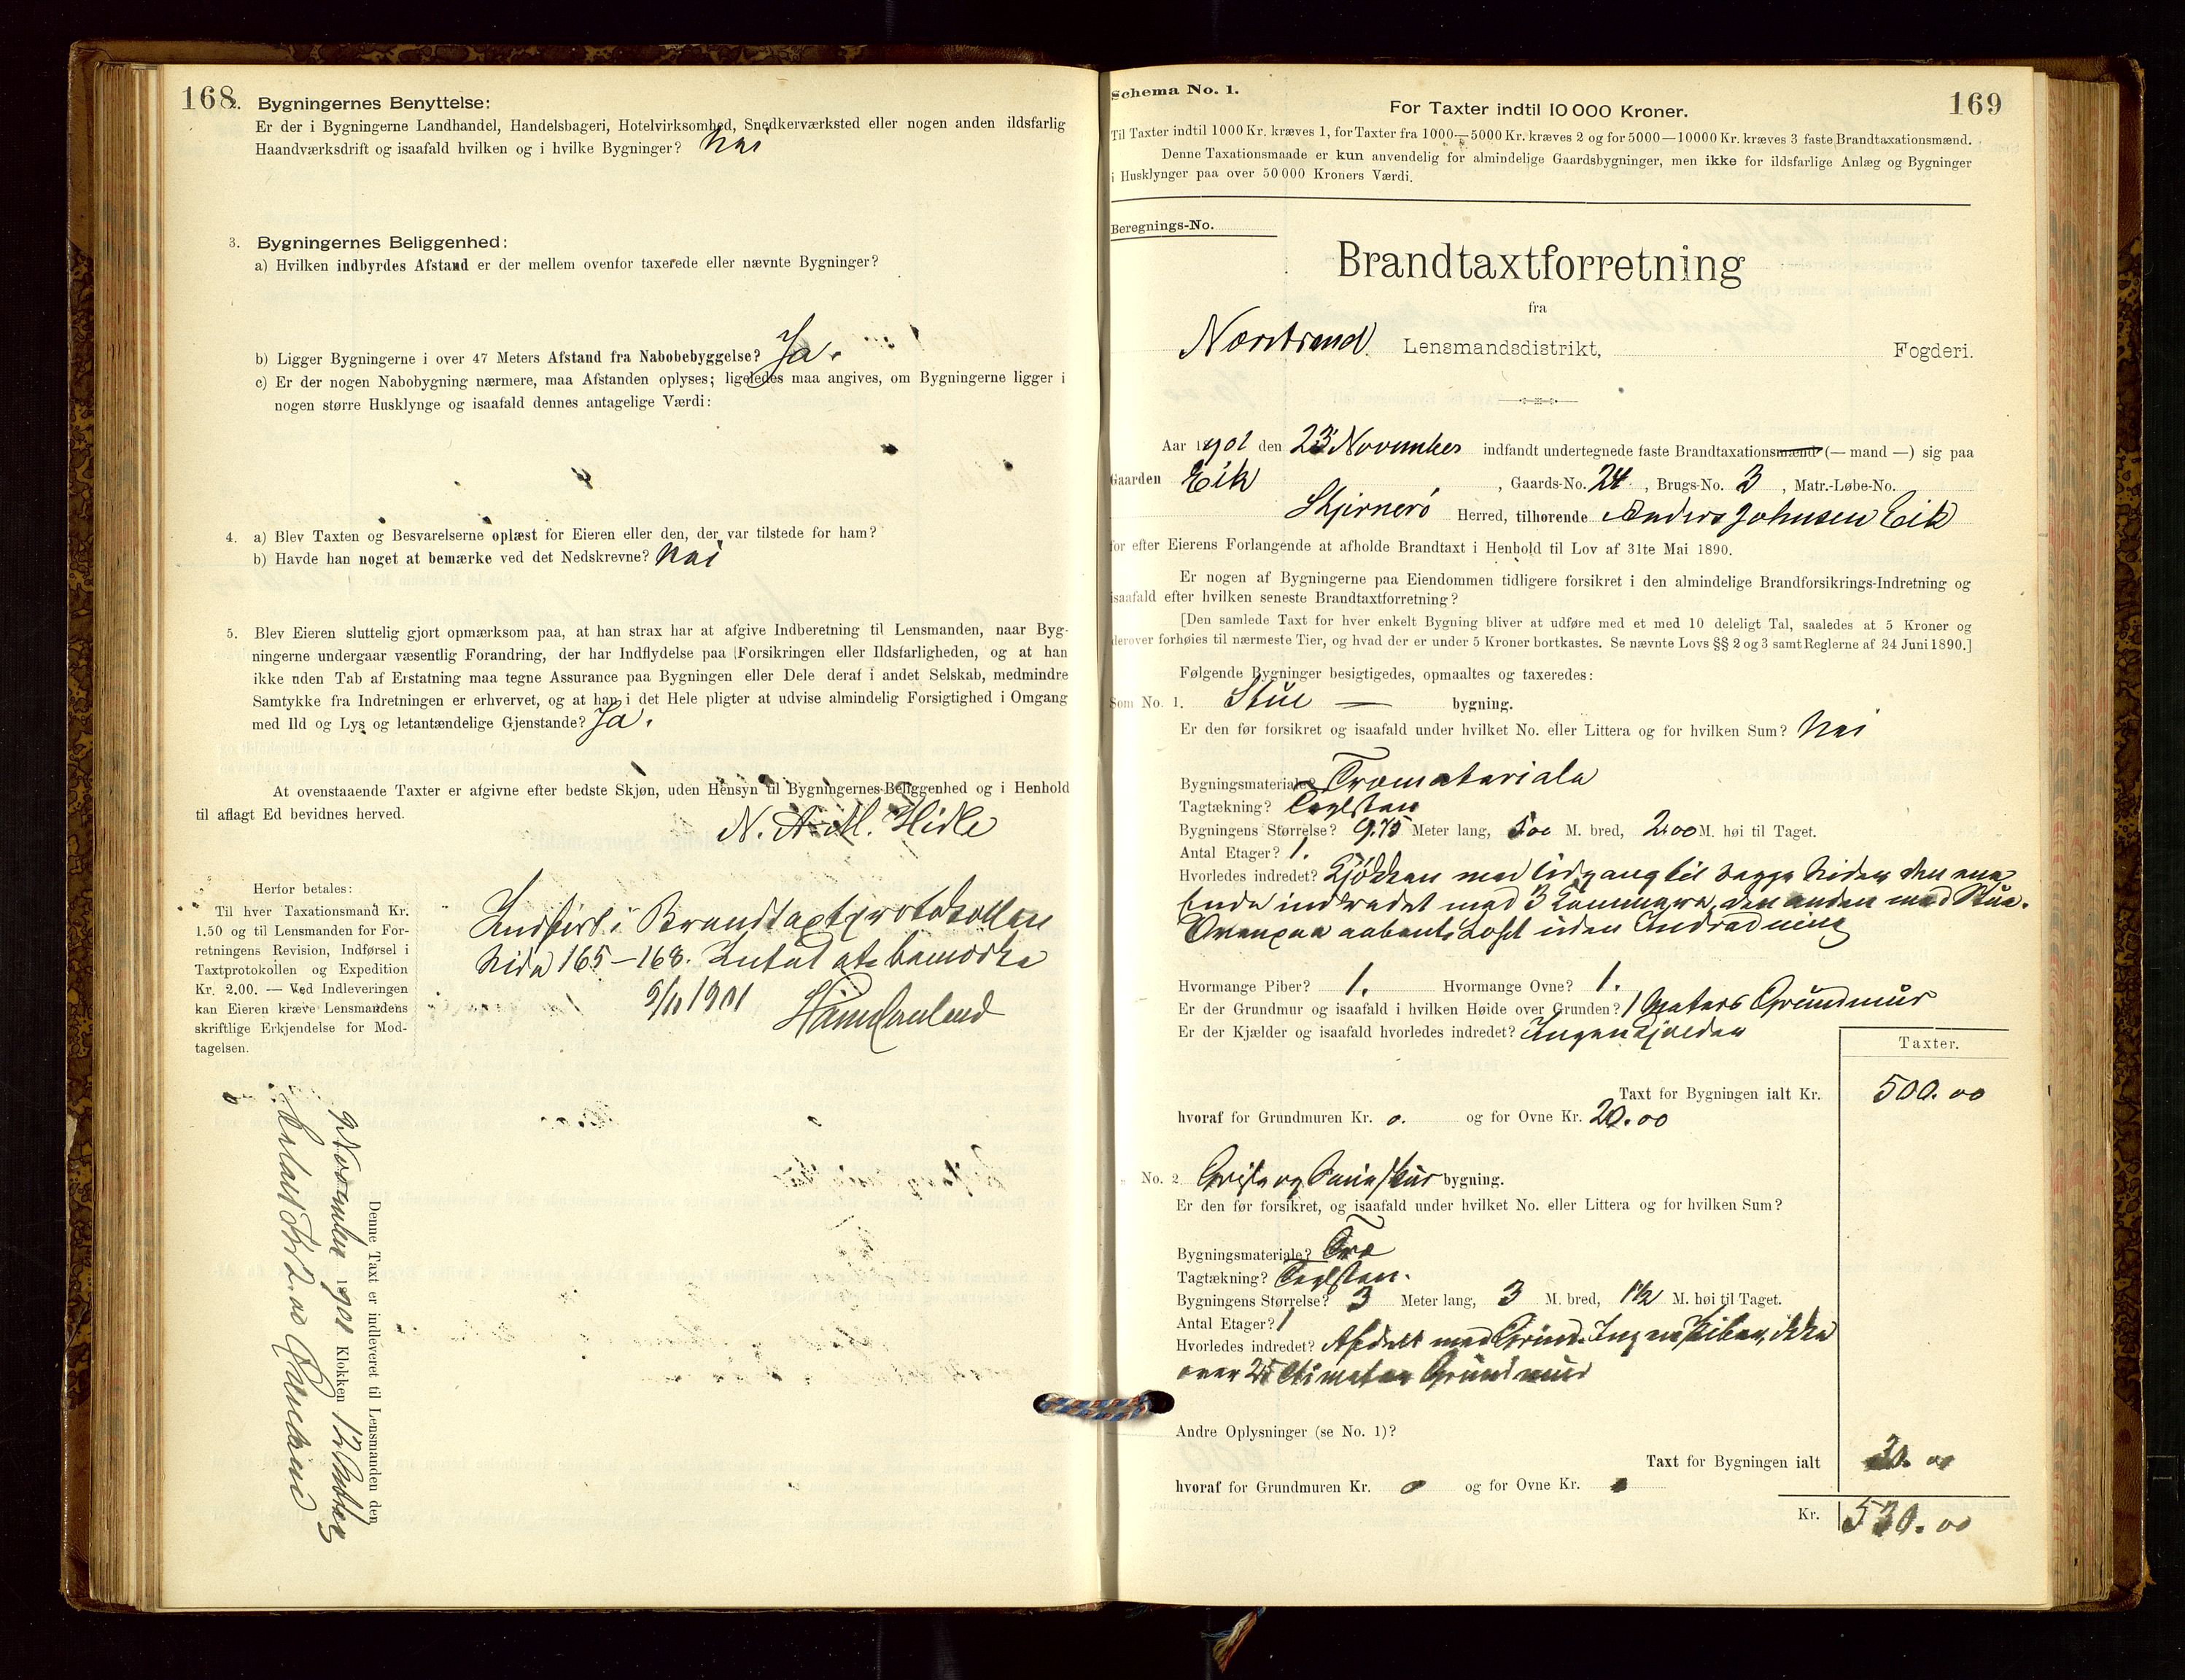 168
2. Bygningernes Benyttelse:
Er der i Bygningerne Landhandel, Handelsbageri, Hotelvirksomhed, Snedkerværksted eller nogen anden ildsfarlig
Haandværksdrift og isaafald hvilken og i hvilke Bygninger? Nei
3. Bygningernes Beliggenhed:
a) Hvilken indbyrdes Afstand er der mellem ovenfor taxerede eller nævnte Bygninger?
b) Ligger Bygningerne i over 47 Meters Afstand fra Nabobebyggelse? Ja.
c) Er der nogen Nabobygning nærmere, maa Afstanden oplyses; ligeledes maa angives, om Bygningerne ligger i
nogen større Husklynge og isaafald dennes antagelige Værdi:
4. a) Blev Taxten og Besvarelserne oplæst for Eieren eller den, der var tilstede for ham?
b) Havde han noget at bemærke ved det Nedskrevne? Nei
5. Blev Eieren sluttelig gjort opmærksom paa, at han strax har at afgive Indberetning til Lensmanden, naar Byg-
ningerne undergaar væsentlig Forandring, der har Indflydelse paa Forsikringen eller Ildsfarligheden, og at han
ikke uden Tab af Erstatning maa tegne Assurance paa Bygningen eller Dele deraf i andet Selskab, medmindre
Samtykke fra Indretningen er erhvervet, og at han i det Hele pligter at udvise almindelig Forsigtighed i Omgang
med Ild og Lys og letantændelige Gjenstande? Ja.
At ovenstaaende Taxter er afgivne efter bedste Skjøn, uden Hensyn til Bygningernes Beliggenhed og i Henhold
til aflagt Ed bevidnes herved.
N. A. M. Hidle
Herfor betales:
Til hver Taxationsmand Kr.
1.50 og til Lensmanden for For-
retningens Revision, Indførsel i
Taxtprotokollen og Expedition
Kr. 2.00. — Ved Indleveringen
kan Eieren kræve Lensmandens
skriftlige Erkjendelse for Mod-
tagelsen.
Indført i Brandtaxtprotokollen
Side 165–168. Intet at bemærke
1901
Denne Taxt er indleveret til Lensmanden den
9 November 1901 Klokken 12
Betalt Kr 2.00
Schema No. 1.
169
For Taxter indtil 10 000 Kroner.
Til Taxter indtil 1000 Kr. kræves 1, for Taxter fra 1000—5000 Kr. kræves 2 og for 5000—10000 Kr. kræves 3 faste Brandtaxationsmænd.
Denne Taxationsmaade er kun anvendelig for almindelige Gaardsbygninger, men ikke for ildsfarlige Anlæg og Bygninger
i Husklynger paa over 50 000 Kroners Værdi.
Beregnings-No.
Brandtaxtforretning
fra
Nærstrand Lensmandsdistrikt, Fogderi.
Aar 1901 den 23 November indfandt undertegnede faste Brandtaxationsmænd (— mand —) sig paa
Gaarden Eik, Gaards-No. 24, Brugs-No. 3, Matr.-Løbe-No.
Skjernerø Herred, tilhørende Anders Johnsen Eik
for efter Eierens Forlangende at afholde Brandtaxt i Henhold til Lov af 31te Mai 1890.
Er nogen af Bygningerne paa Eiendommen tidligere forsikret i den almindelige Brandforsikrings-Indretning og
isaafald efter hvilken seneste Brandtaxtforretning?
[Den samlede Taxt for hver enkelt Bygning bliver at udføre med et med 10 deleligt Tal, saaledes at 5 Kroner og
derover forhøies til nærmeste Tier, og hvad der er under 5 Kroner bortkastes. Se nævnte Lovs §§ 2 og 3 samt Reglerne af 24 Juni 1890.]
Følgende Bygninger besigtigedes, opmaaltes og taxeredes:
Som No. 1. Stue — bygning.
Er den før forsikret og isaafald under hvilket No. eller Littera og for hvilken Sum? Nei
Bygningsmateriale? Træmateriale
Tagtækning? Teglsten
Bygningens Størrelse? 9.75 Meter lang, 5.00 M. bred, 2.00 M. høi til Taget.
Antal Etager? 1.
Hvorledes indredet? Kjøkken med Udgang til begge Sider, den ene
Ende indredet med 3 Kammere, den anden med Stue.
Ovenpaa aabent Loft uden Indredning
Hvormange Piber? 1. Hvormange Ovne? 1.
Er der Grundmur og isaafald i hvilken Høide over Grunden? 1 Meters Grundmur
Er der Kjælder og isaafald hvorledes indredet? Ingen Kjælder
Taxter.
Taxt for Bygningen ialt Kr. 500.00
hvoraf for Grundmuren Kr. 0. og for Ovne Kr. 20.00
" No. 2 Grise og skur bygning.
Er den før forsikret, og isaafald under hvilket No. eller Littera og for hvilken Sum?
Bygningsmateriale? Træ
Tagtækning? Teglsten.
Bygningens Størrelse? 3 Meter lang, 3 M. bred, 1½ M. høi til Taget.
Antal Etager? 1
Hvorledes indredet? Afdelt med Grind. Ingen Piber, ikke
over 25 Ctimeter Grundmur
Andre Oplysninger (se No. 1)?
Taxt for Bygningen ialt 30.00
hvoraf for Grundmuren Kr. 0 og for Ovne Kr. 0
Kr. 530.00